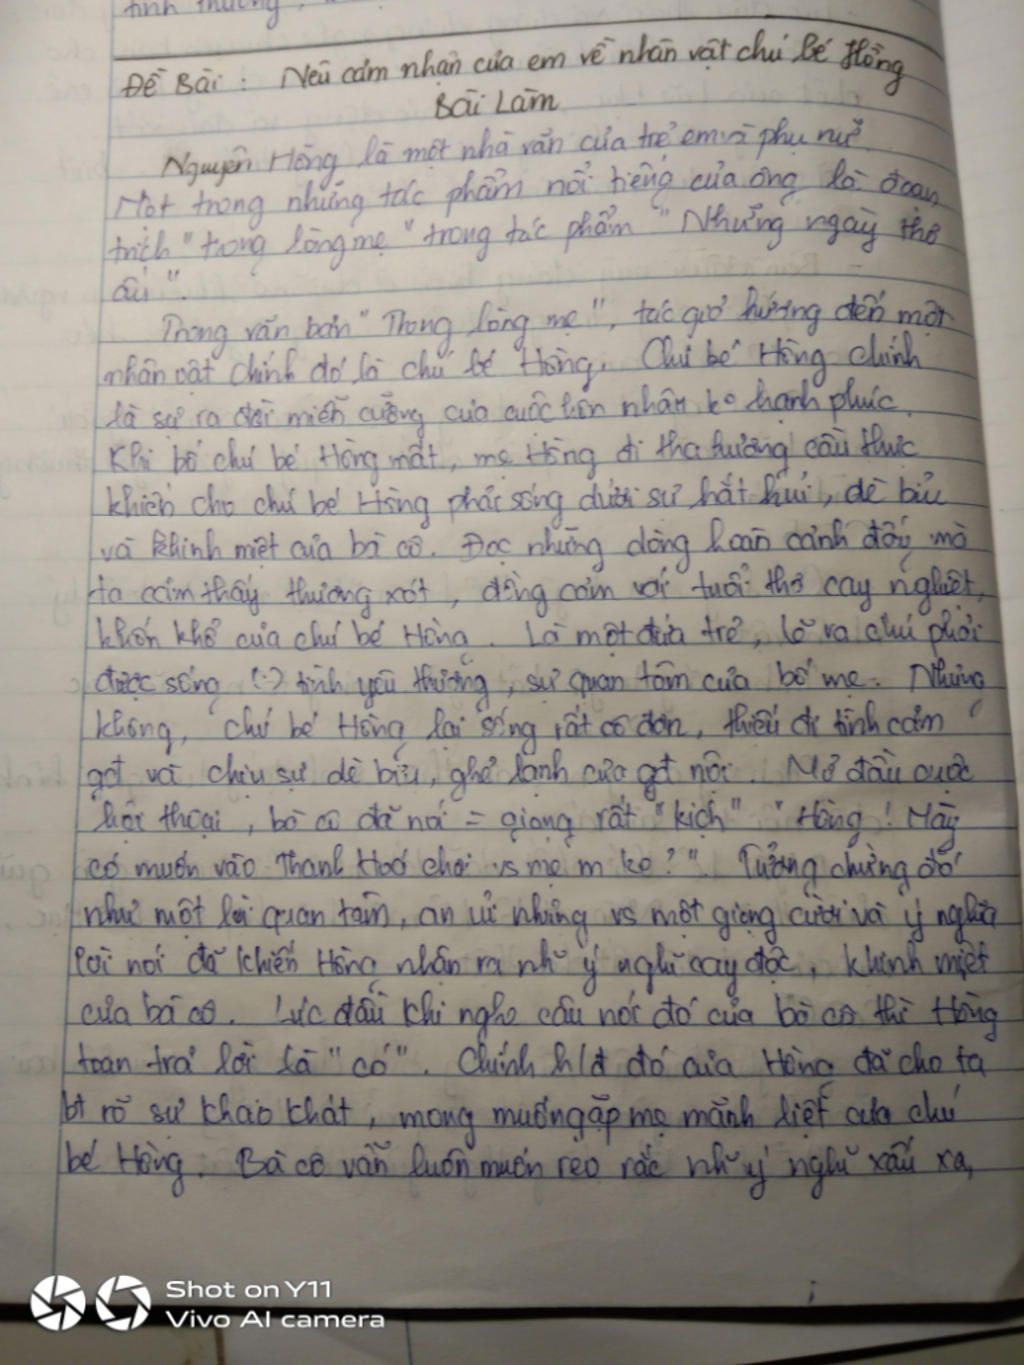 tình thương,
Đề Bài : Nêu cảm nhận của em về nhân vật chú bé Hồng
Bài Làm
Nguyên Hồng là một nhà văn của trẻ em và phụ nữ.
Một trong những tác phẩm nổi tiếng của ông là đoạn
trích "trong lòng mẹ" trong tác phẩm "Những ngày thơ
ấu".
Trong văn bản "Trong lòng mẹ", tác giả hướng đến một
nhân vật chính đó là chú bé Hồng. Chú bé Hồng chính
là sự ra đời miễn cưỡng của cuộc hôn nhân ko hạnh phúc.
Khi bố chú bé Hồng mất, mẹ Hồng đi tha hương cầu thực
khiến cho chú bé Hồng phải sống dưới sự hắt hủi, dè bỉu
và khinh miệt của bà cô. Đọc những dòng hoàn cảnh đấy mà
ta cảm thấy thương xót, đồng cảm với tuổi thơ cay nghiệt,
khốn khổ của chú bé Hồng. Là một đứa trẻ, lẽ ra chú phải
được sống (:) tình yêu thương, sự quan tâm của bố mẹ. Nhưng
không, chú bé Hồng lại sống rất cô đơn, thiếu đi tình cảm
gđ và chịu sự dè bỉu, ghẻ lạnh của gđ nội. Mở đầu cuộc
hội thoại, bà cô đã nói = giọng rất "kịch" "Hồng! Mày
có muốn vào Thanh Hoá chơi vs mẹ m ko?". Tưởng chừng đó
như một lời quan tâm, an ủi nhưng vs một giọng cười và ý nghĩa
lời nói đã khiến Hồng nhận ra nh~ ý nghĩ cay độc, khinh miệt
của bà cô. Lúc đầu khi nghe câu nói đó của bà cô thì Hồng
toan trả lời là "có". Chính h/đ đó của Hồng đã cho ta
bt rõ sự khao khát, mong muốn gặp mẹ mãnh liệt của chú
bé Hồng. Bà cô vẫn luôn muốn reo rắc nh~ ý nghĩ xấu xa,
Shot on Y11
Vivo AI camera